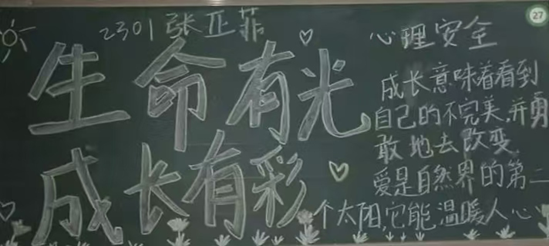 2301张正菲
27
生命有光
成长有彩
心理安全
成长意味着看到
自己的不完美,并勇
敢地去改变.
爱是自然界的第二
个太阳,它能温暖人心